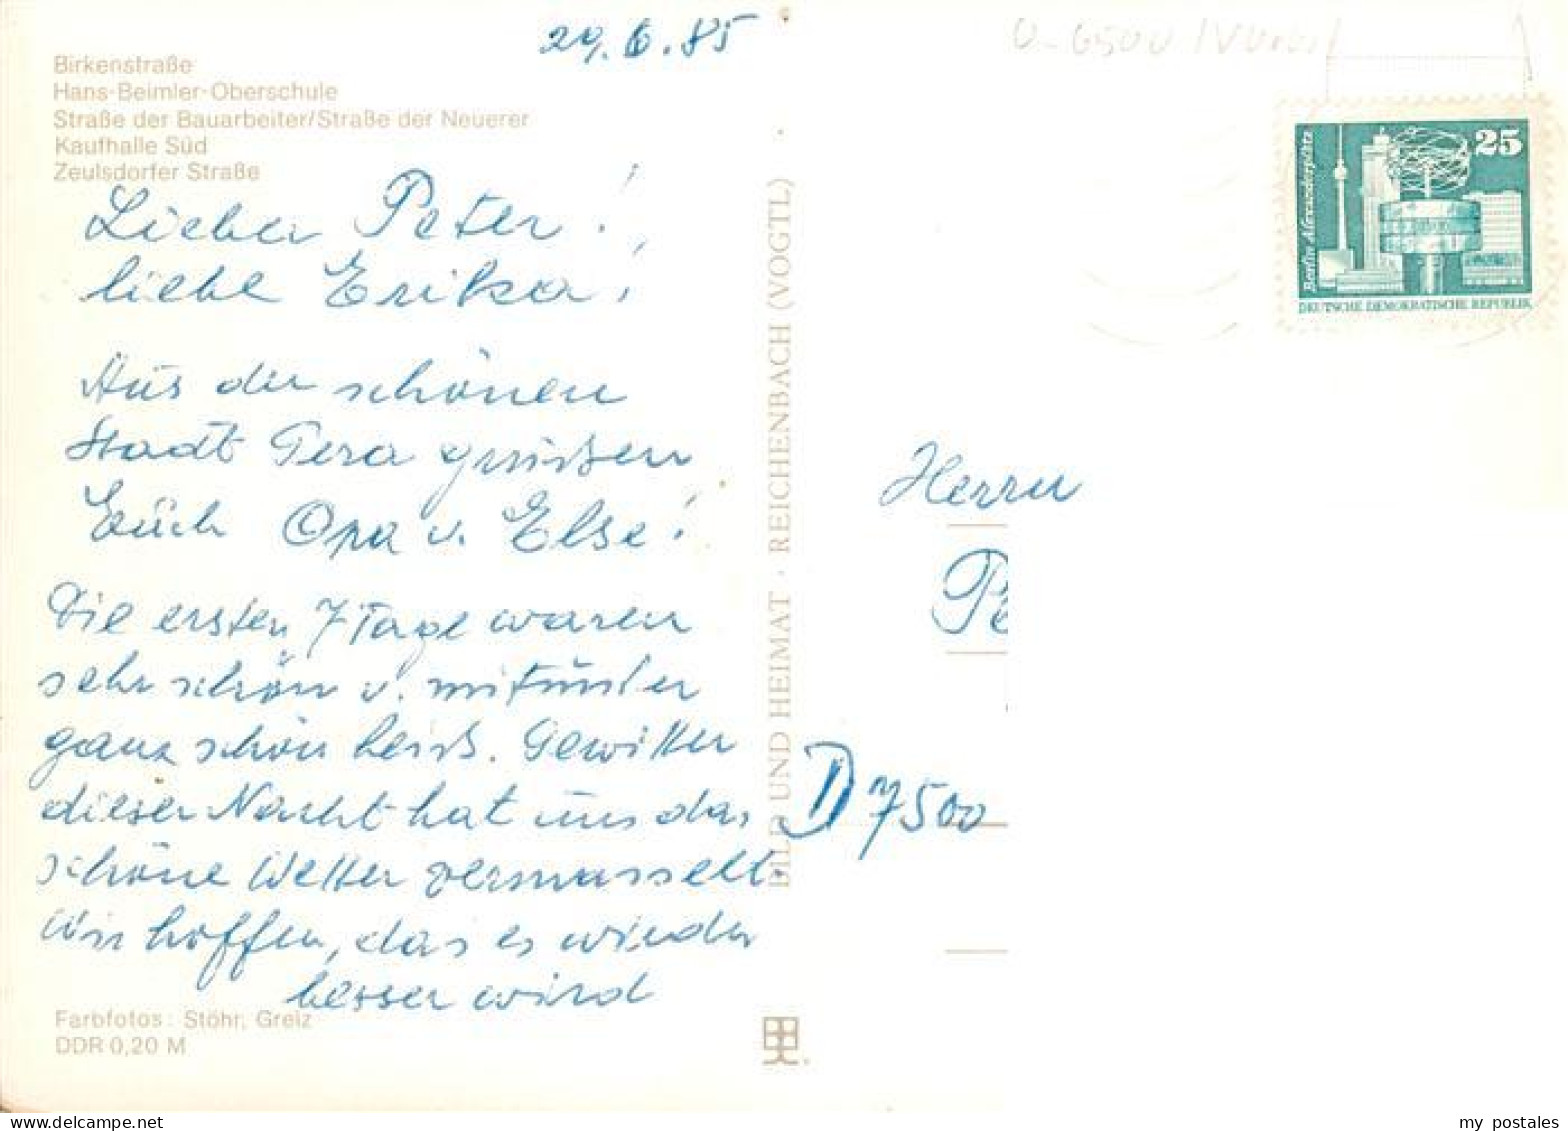 29.6.85
Birkenstraße
Hans-Beimler-Oberschule
Straße der Bauarbeiter/Straße der Neuerer
Kaufhalle Süd
Zeulsdorfer Straße
Lieber Peter!
liebe Erika!
Aus der schönen
Stadt Gera grüßen
Euch Opa u. Else!
Die ersten 7 Tage waren
sehr schön u. mitunter
ganz schön heiß. Gewitter
dieser Nacht hat uns das
schöne Wetter vermasselt.
Wir hoffen, das es wieder
besser wird
Farbfotos: Stöhr, Greiz
DDR 0,20 M
BILD UND HEIMAT · REICHENBACH (VOGTL)
25
Berlin Alexanderplatz
DEUTSCHE DEMOKRATISCHE REPUBLIK
Herrn
Pe
D 7500
my postales